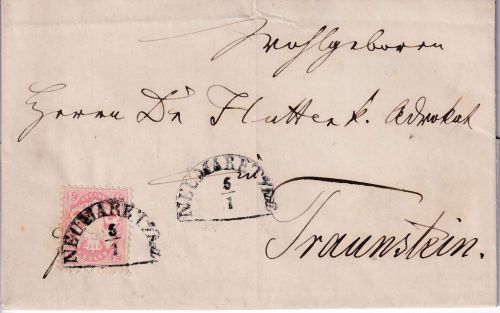 Wohlgeboren
Herrn Dr. Flatter k. Advokat
in
Traunstein.
NEUMARKT
5
1
NEUMARKT
5
1